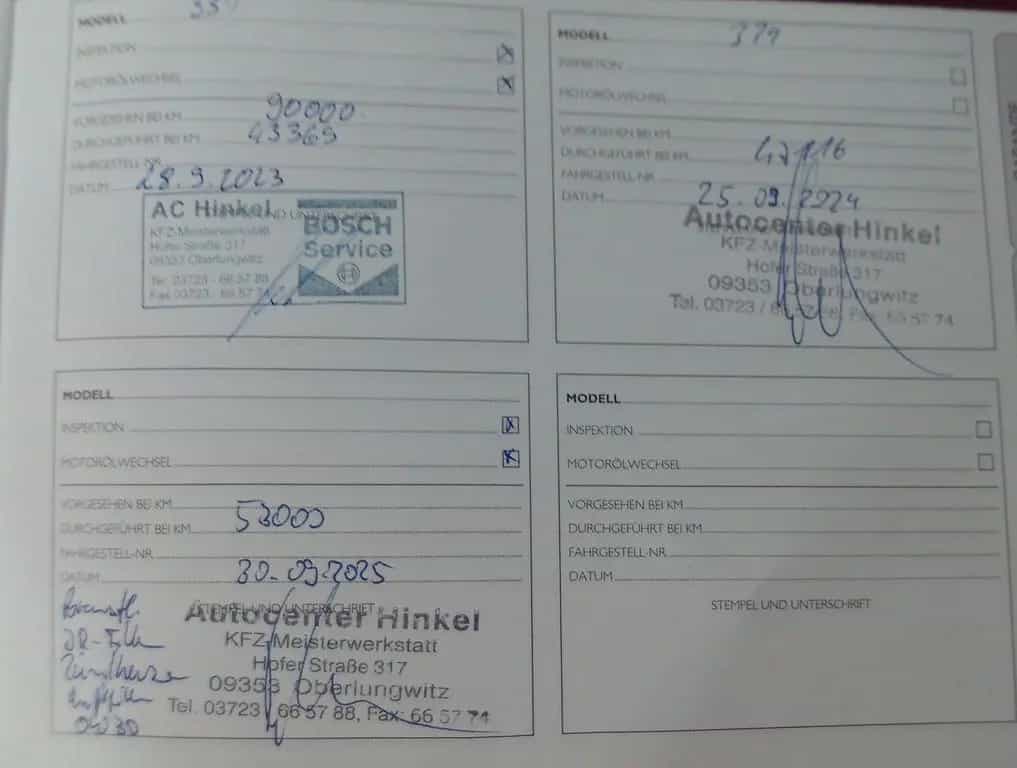 MODELL
INSPEKTION
MOTORÖLWECHSEL
VORGESEHEN BEI KM 90000
DURCHGEFÜHRT BEI KM 43369
FAHRGESTELL-NR.
DATUM 28.9.2023
STEMPEL UND UNTERSCHRIFT
AC Hinkel
KFZ-Meisterwerkstatt
Hofer Straße 317
09353 Oberlungwitz
Tel. 03723 - 66 57 88
Fax 03723 - 66 57 74
BOSCH
Service
MODELL 379
INSPEKTION
MOTORÖLWECHSEL
VORGESEHEN BEI KM
DURCHGEFÜHRT BEI KM
FAHRGESTELL-NR.
DATUM 25.09.2024
Autocenter Hinkel
KFZ-Meisterwerkstatt
Hofer Straße 317
09353 Oberlungwitz
Tel. 03723 / 66 57 88, Fax: 66 57 74
MODELL
INSPEKTION
MOTORÖLWECHSEL
VORGESEHEN BEI KM
DURCHGEFÜHRT BEI KM 53000
FAHRGESTELL-NR.
DATUM 30.09.2025
STEMPEL UND UNTERSCHRIFT
Autocenter Hinkel
KFZ-Meisterwerkstatt
Hofer Straße 317
09353 Oberlungwitz
Tel. 03723 66 57 88, Fax: 66 57 74
MODELL
INSPEKTION
MOTORÖLWECHSEL
VORGESEHEN BEI KM
DURCHGEFÜHRT BEI KM
FAHRGESTELL-NR.
DATUM
STEMPEL UND UNTERSCHRIFT